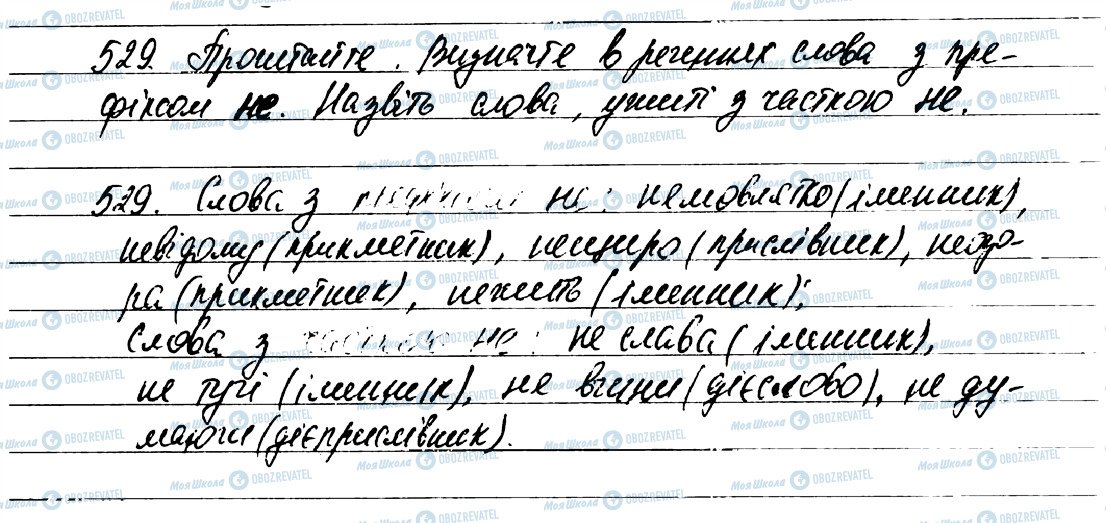 529. Прочитайте. Визначте в реченнях слова з пре-
фіксом не. Назвіть слова, ужиті з часткою не.
529. Слова з не: немовлятко (іменник),
невідому (прикметник), нещиро (прислівник), недо-
ра (прикметник), нежить (іменник);
слова з часткою не: не слава (іменник),
не тучі (іменник), не вчини (дієслово), не ду-
маючи (дієприслівник).